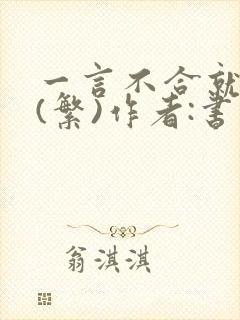 一言不合就
(繁)作者:書
翁淇淇